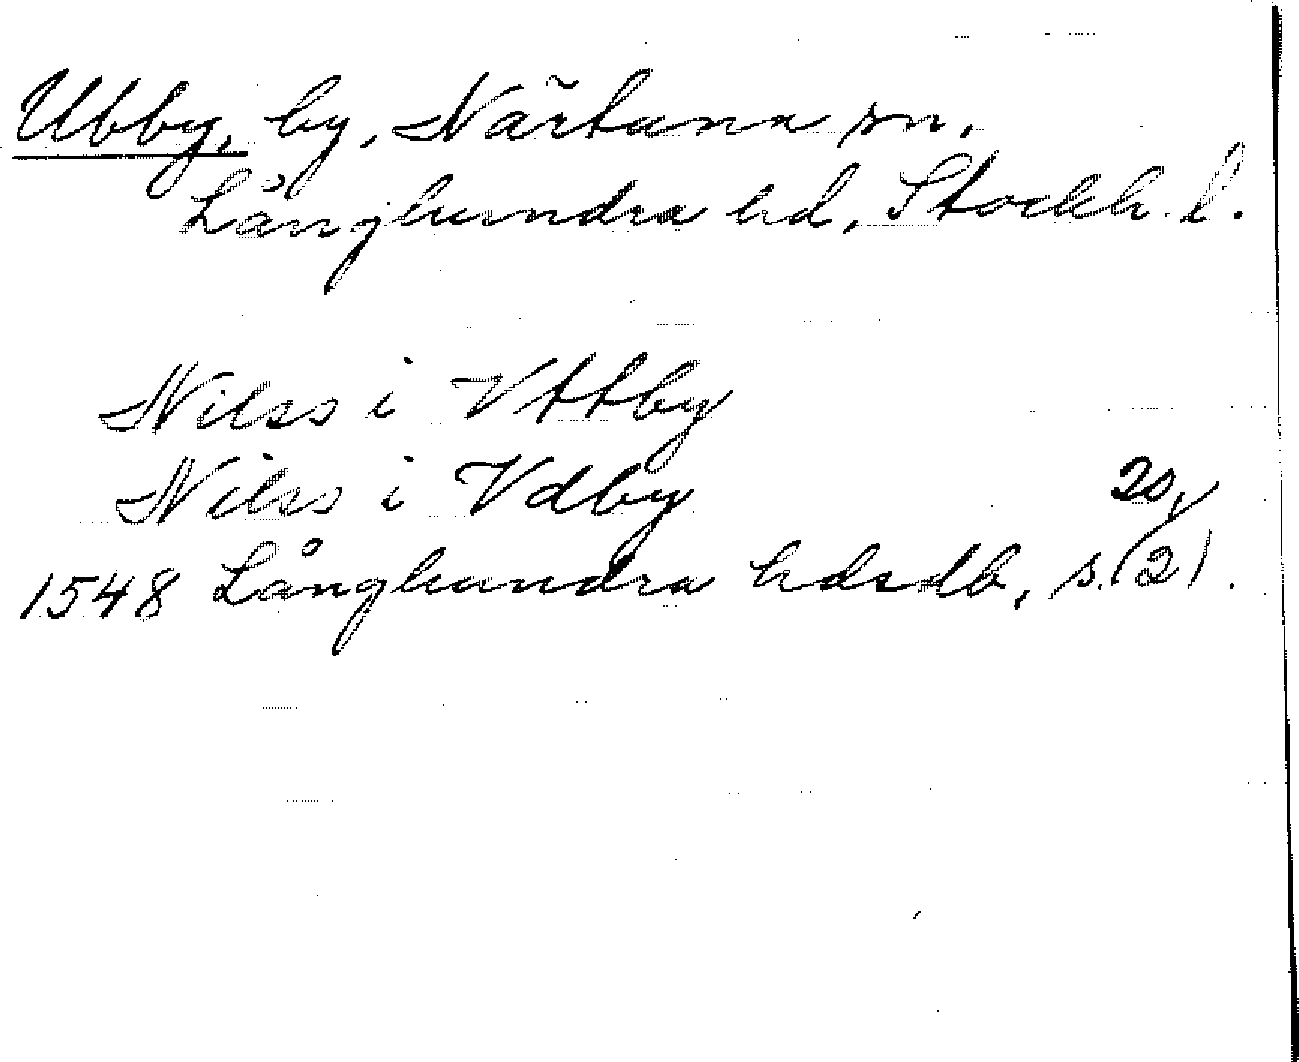 Ubby, by, Närtuna sn.
Långhundra hd, Stockh. l.
Nilss i Vttby
Nilss i Vdby
20,
1548 Långhundra hdsdb, s. (2).